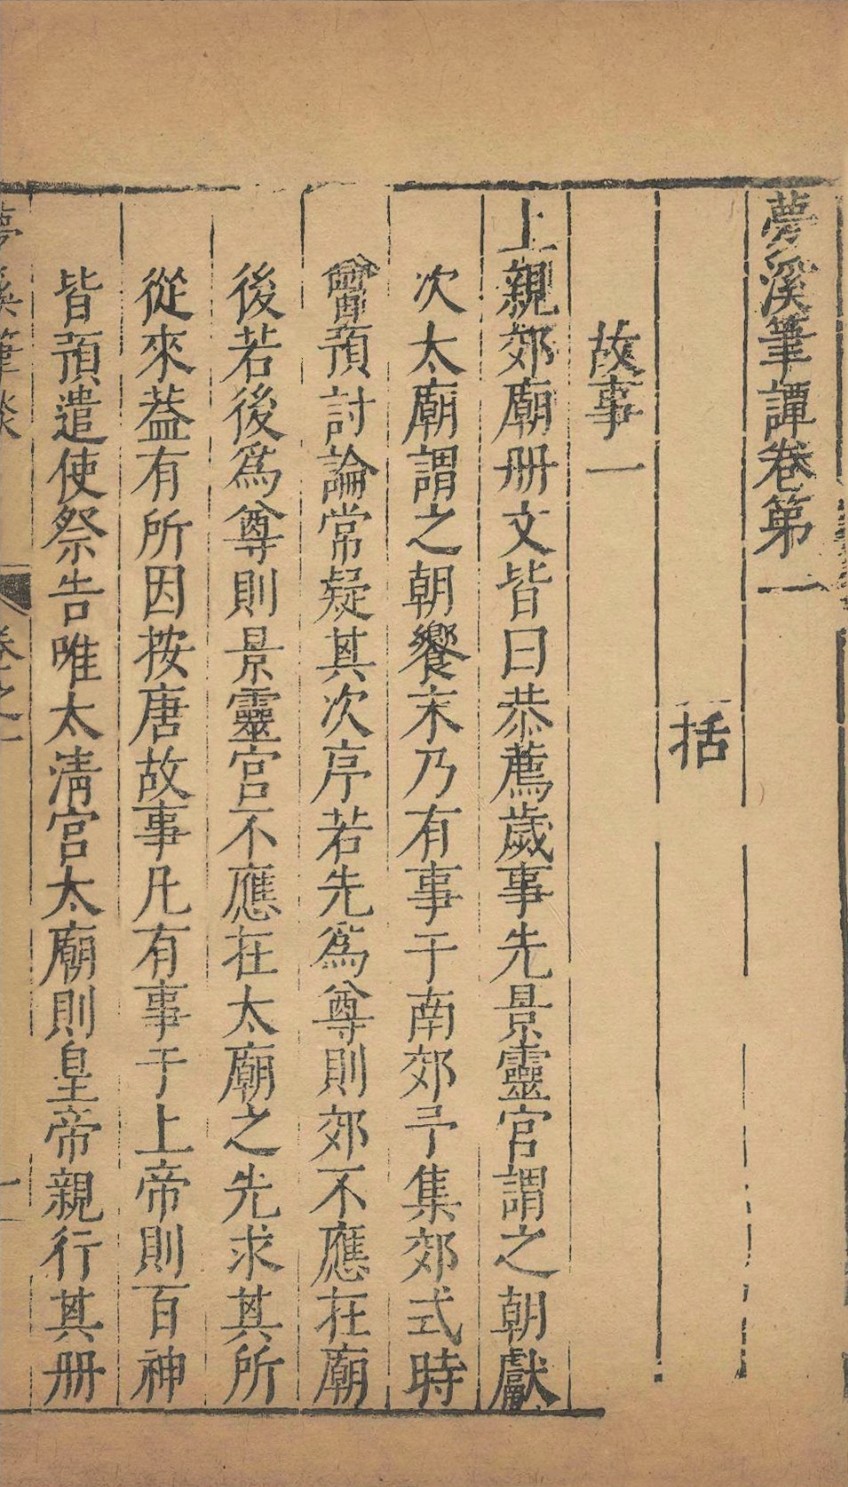 夢溪筆譚卷第一
括
故事一
上親郊廟册文皆曰恭薦歲事先景靈宫謂之朝獻
次太廟謂之朝饗末乃有事于南郊予集郊式時
曾預討論常疑其次序若先爲尊則郊不應在廟
後若後爲尊則景靈宫不應在太廟之先求其所
從來葢有所因按唐故事凡有事于上帝則百神
皆預遣使祭告唯太清宫太廟則皇帝親行其册
夢溪筆談 卷之一 一